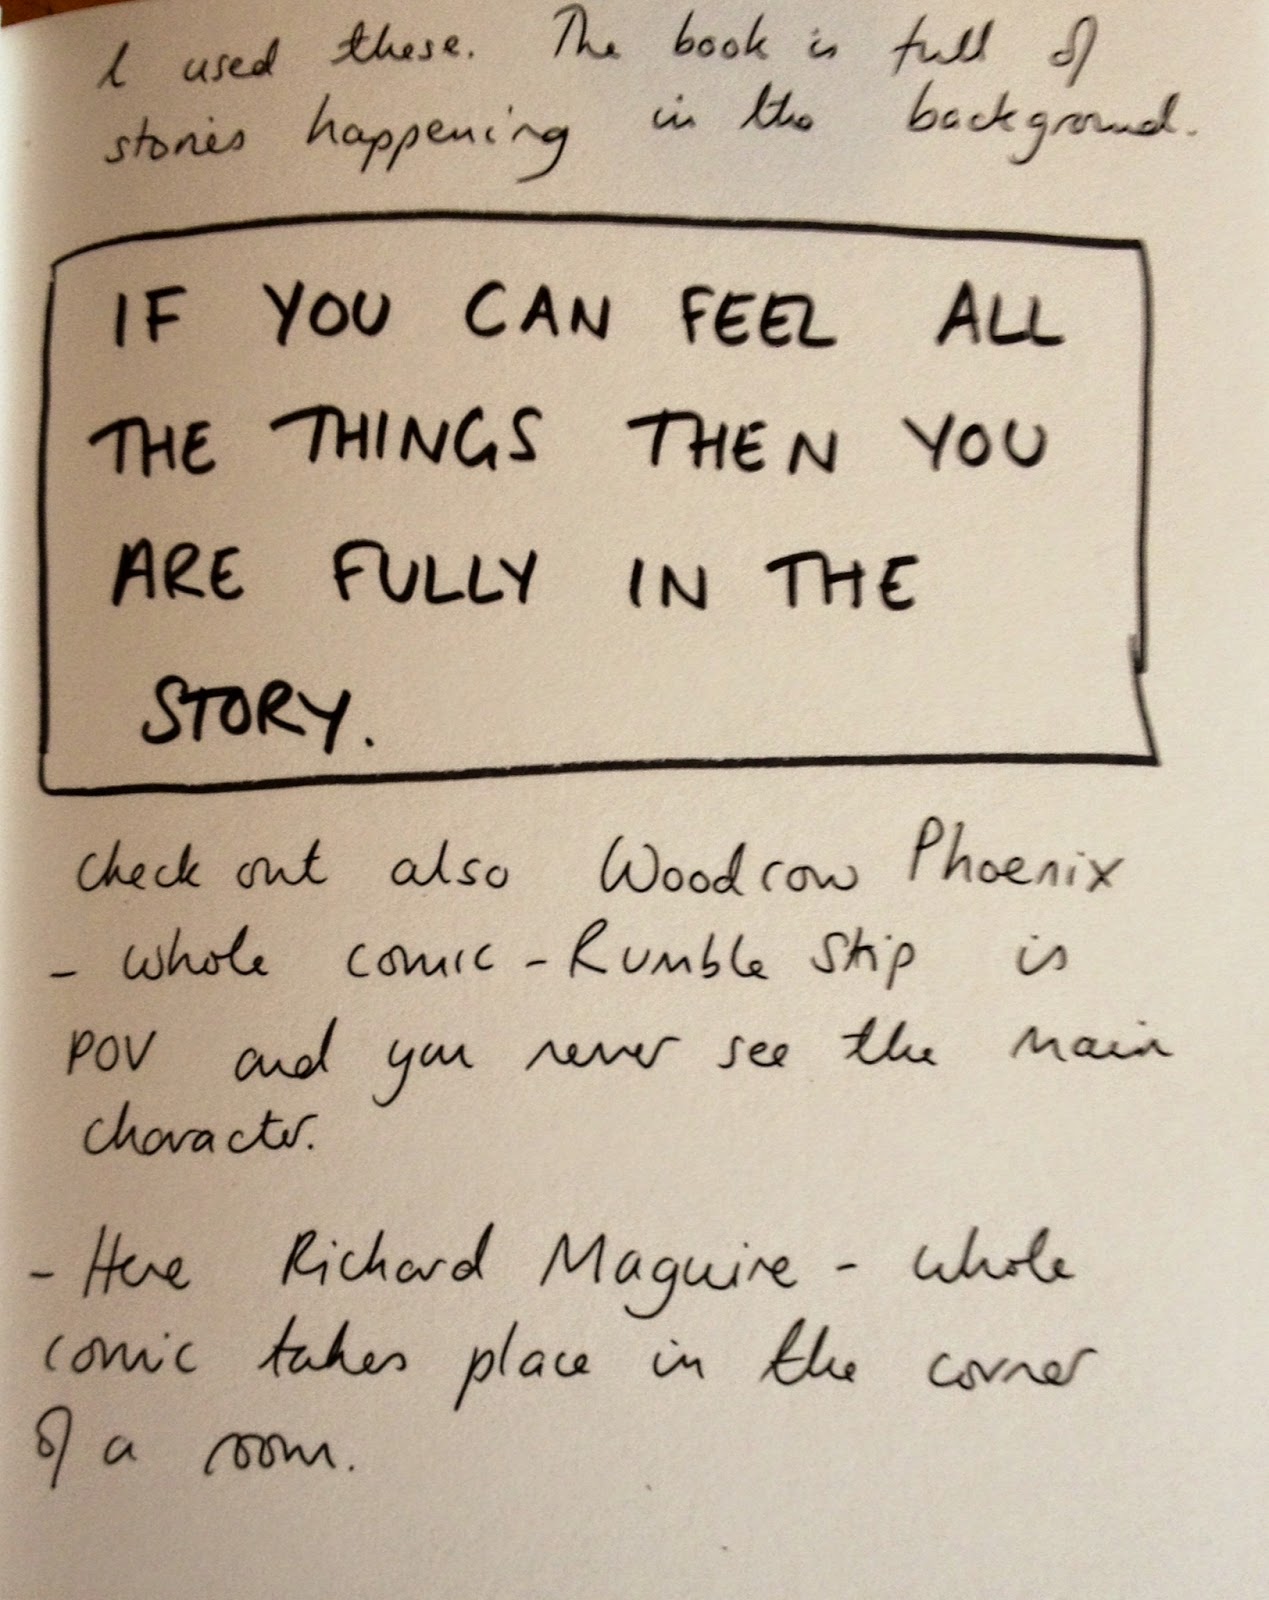 I used these. The book is full of
stories happening in the background.
IF YOU CAN FEEL ALL
THE THINGS THEN YOU
ARE FULLY IN THE
STORY.
Check out also Woodrow Phoenix
- whole comic - Rumble Strip is
POV and you never see the main
character.
- Here Richard Maguire - whole
comic takes place in the corner
of a room.